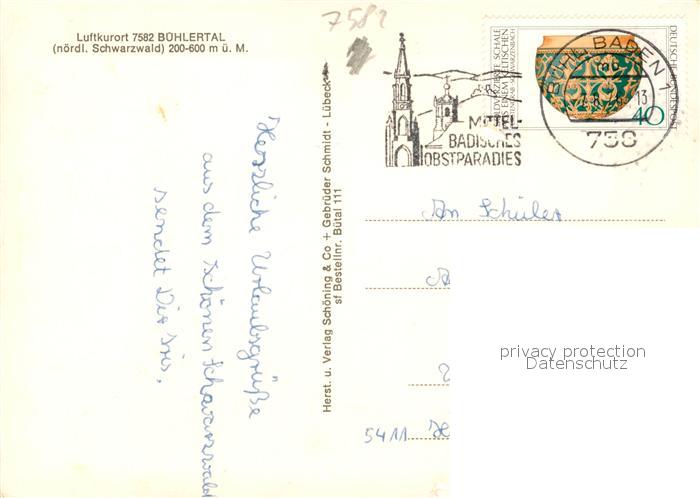 7582
Luftkurort 7582 BÜHLERTAL
(nördl. Schwarzwald) 200-600 m ü. M.
Herzliche Urlaubsgrüße
aus dem schönen Schwarzwald
sendet Dir Iris.
Herst. u. Verlag Schöning & Co + Gebrüder Schmidt - Lübeck
sf Bestellnr. Bütal 111
MITTEL-
BADISCHES
OBSTPARADIES
BÜHL, BADEN 1
mb
13
758
GOLDVERZIERTE SCHALE
AUS EINEM KELTISCHEN
SCHWARZENBACH
DEUTSCHE BUNDESPOST
40
An Schüler
5411
privacy protection
Datenschutz